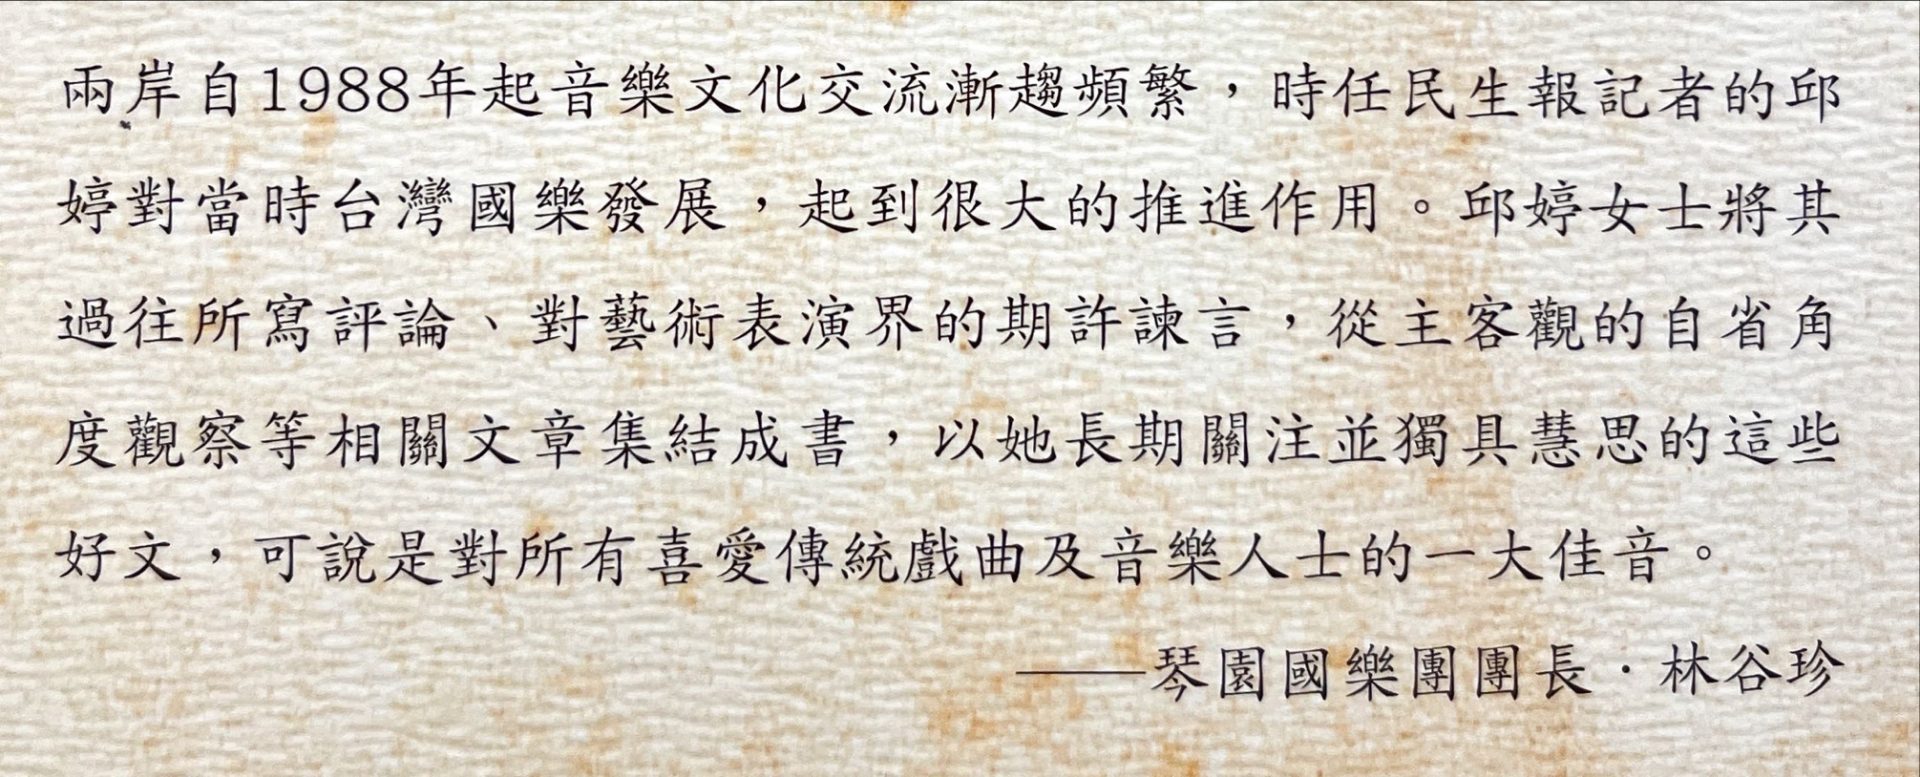 兩岸自1988年起音樂文化交流漸趨頻繁，時任民生報記者的邱
婷對當時台灣國樂發展，起到很大的推進作用。邱婷女士將其
過往所寫評論、對藝術表演界的期許諫言，從主客觀的自省角
度觀察等相關文章集結成書，以她長期關注並獨具慧思的這些
好文，可說是對所有喜愛傳統戲曲及音樂人士的一大佳音。
——琴園國樂團團長．林谷珍